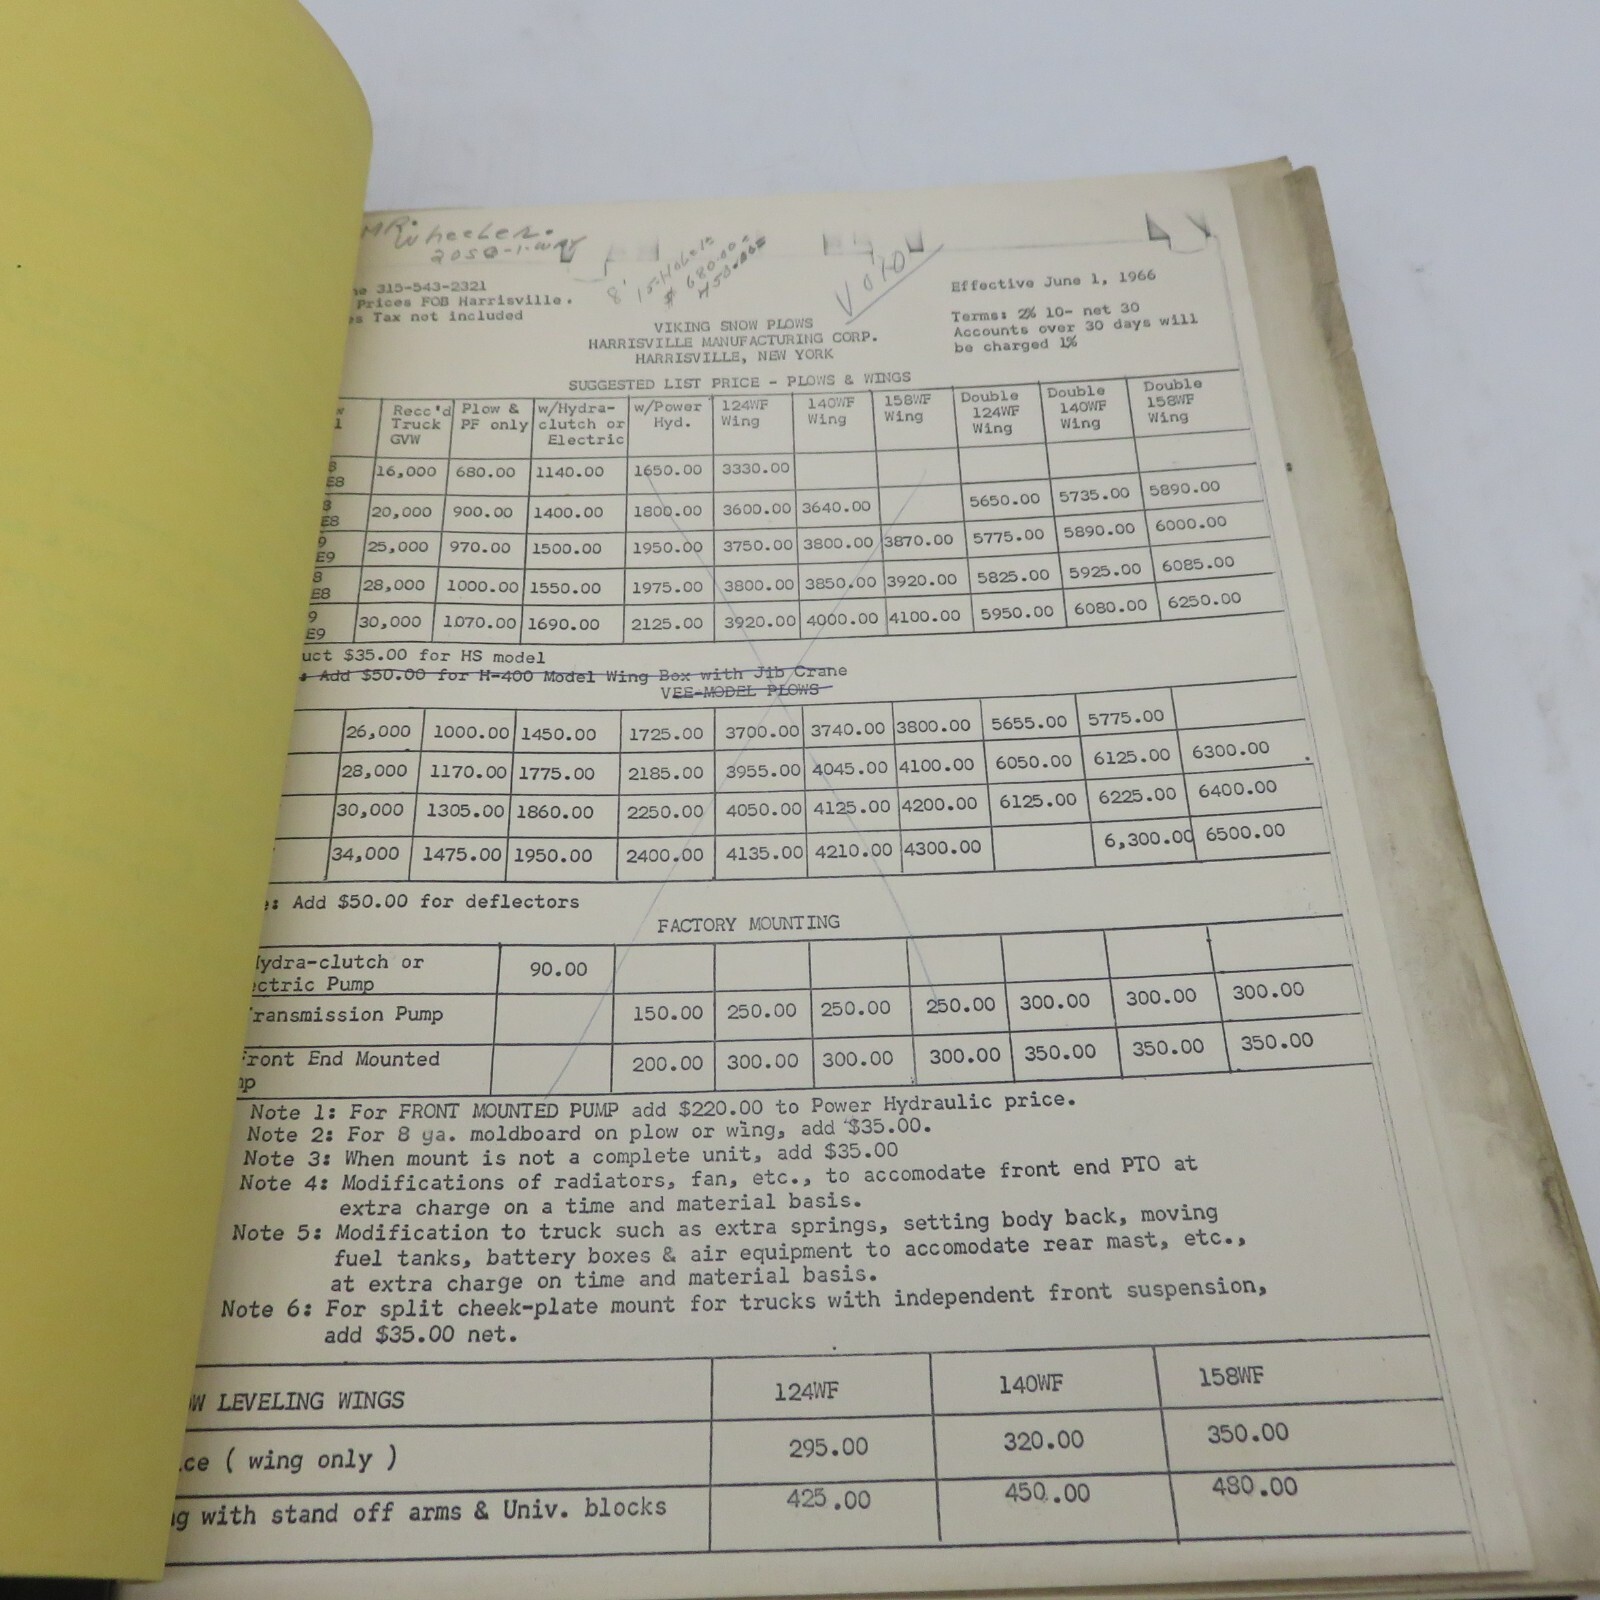 MR. Wheeler.
2050-1-WAY
8' 15-Hole-15
$ 680.00
450.00
VOID
315-543-2321
Prices FOB Harrisville.
Tax not included
Effective June 1, 1966
Terms: 2% 10- net 30
Accounts over 30 days will
be charged 1%
VIKING SNOW PLOWS
HARRISVILLE MANUFACTURING CORP.
HARRISVILLE, NEW YORK
SUGGESTED LIST PRICE - PLOWS & WINGS
Recc'd Truck GVW Plow & PF only w/Hydra-clutch or Electric w/Power Hyd. 124WF Wing 140WF Wing 158WF Wing Double 124WF Wing Double 140WF Wing Double 158WF Wing
E8 16,000 680.00 1140.00 1650.00 3330.00
E8 20,000 900.00 1400.00 1800.00 3600.00 3640.00 5650.00 5735.00 5890.00
9 E9 25,000 970.00 1500.00 1950.00 3750.00 3800.00 3870.00 5775.00 5890.00 6000.00
8 E8 28,000 1000.00 1550.00 1975.00 3800.00 3850.00 3920.00 5825.00 5925.00 6085.00
9 E9 30,000 1070.00 1690.00 2125.00 3920.00 4000.00 4100.00 5950.00 6080.00 6250.00
uct $35.00 for HS model
: Add $50.00 for H-400 Model Wing Box with Jib Crane
VEE-MODEL PLOWS
26,000 1000.00 1450.00 1725.00 3700.00 3740.00 3800.00 5655.00 5775.00
28,000 1170.00 1775.00 2185.00 3955.00 4045.00 4100.00 6050.00 6125.00 6300.00
30,000 1305.00 1860.00 2250.00 4050.00 4125.00 4200.00 6125.00 6225.00 6400.00
34,000 1475.00 1950.00 2400.00 4135.00 4210.00 4300.00 6,300.00 6500.00
e: Add $50.00 for deflectors
FACTORY MOUNTING
ydra-clutch or
ectric Pump 90.00
ransmission Pump 150.00 250.00 250.00 250.00 300.00 300.00 300.00
ront End Mounted 200.00 300.00 300.00 300.00 350.00 350.00 350.00
mp
Note 1: For FRONT MOUNTED PUMP add $220.00 to Power Hydraulic price.
Note 2: For 8 ga. moldboard on plow or wing, add $35.00.
Note 3: When mount is not a complete unit, add $35.00
Note 4: Modifications of radiators, fan, etc., to accomodate front end PTO at
extra charge on a time and material basis.
Note 5: Modification to truck such as extra springs, setting body back, moving
fuel tanks, battery boxes & air equipment to accomodate rear mast, etc.,
at extra charge on time and material basis.
Note 6: For split cheek-plate mount for trucks with independent front suspension,
add $35.00 net.
OW LEVELING WINGS 124WF 140WF 158WF
ce ( wing only ) 295.00 320.00 350.00
g with stand off arms & Univ. blocks 425.00 450.00 480.00